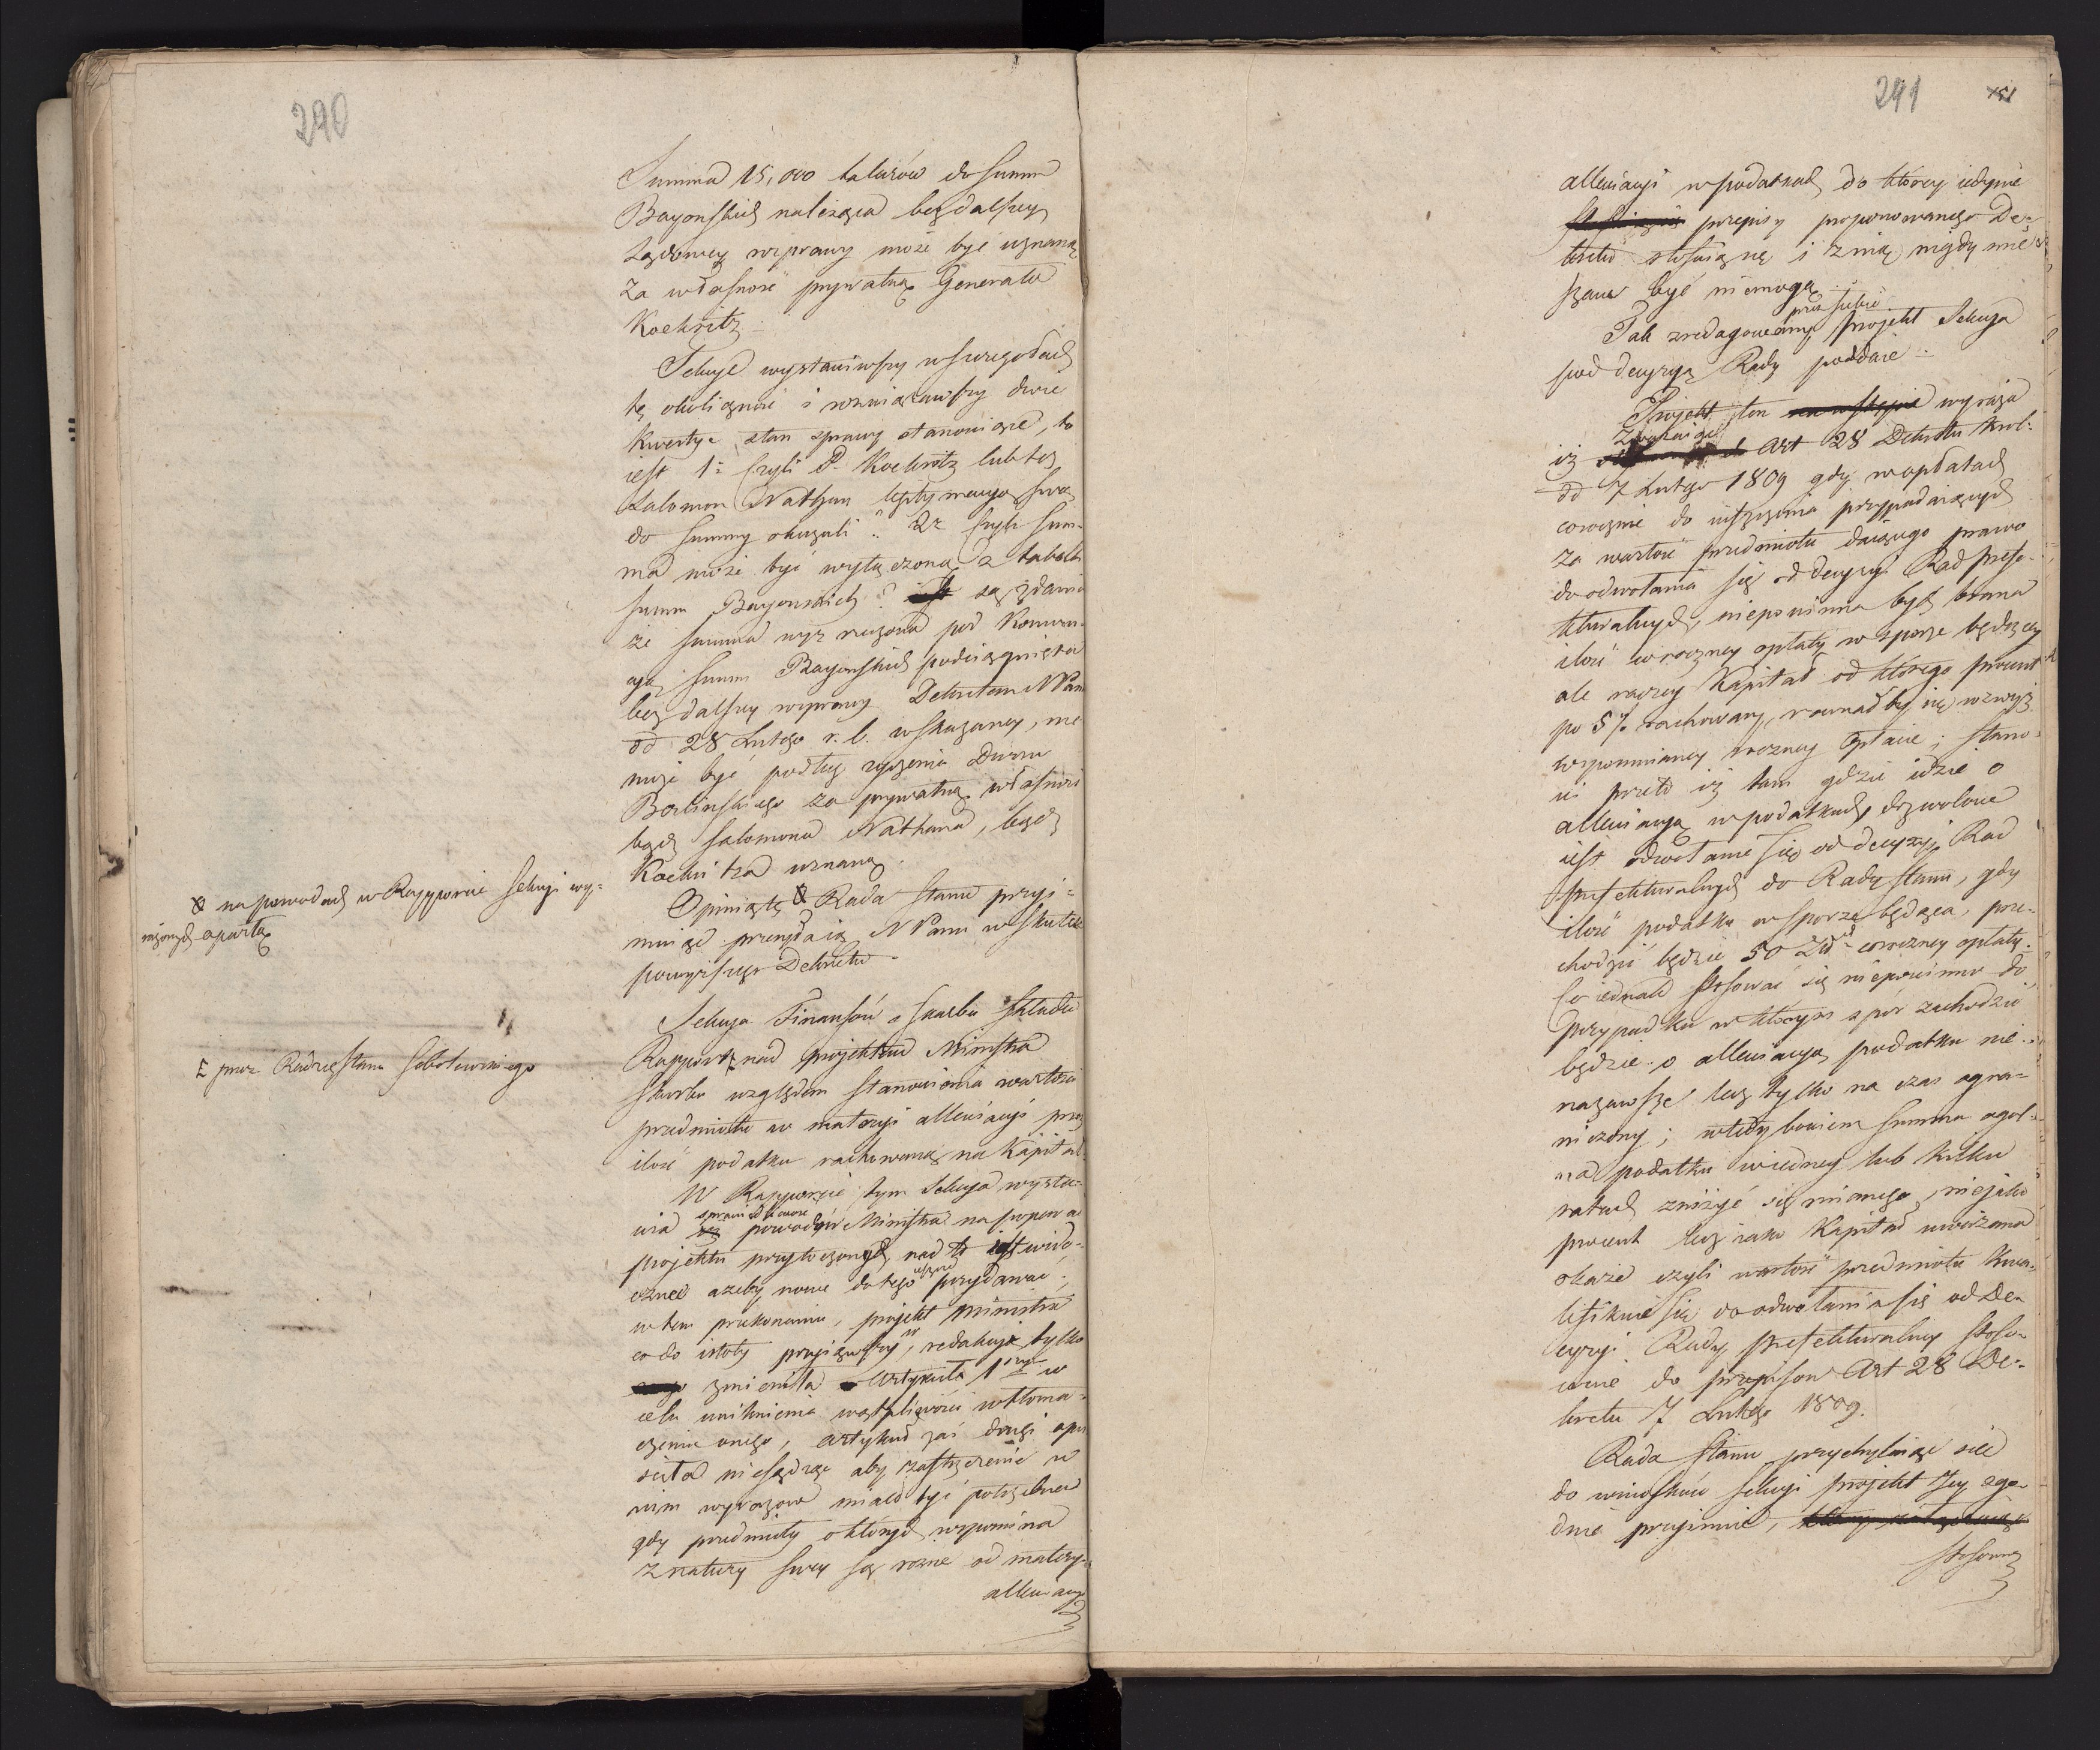 290
Summa 15,000 talarów do summ
Bayonskich należąca bez dalszey
Sądowey rozprawy może być uznaną
za własność prywatną Generała
Koekritz.
Sekcya wystawiwszy w szczegółach
tę okoliczność i rozwiązawszy dwie
kwestye stan sprawy stanowiące, to
iest 1<sup>o</sup> Czyli P. Koekritz lub też
Salomon Nathan legitymacyą swą
do summy okazali? 2<sup>o</sup> Czyli sum-
ma może być wyłączoną z tabelli
summ Bayonskich? są zdania
że summa wyż rzeczona pod Konwen-
cyą summ Bayonskich podciągnięta
bez dalszey rozprawy Dekretem NPana
od 28 Lutego r. b. wskazaney, nie
może być podług żądzenia Dworu
Berlinskiego za prywatną własność
bądź Salomona Nathana, bądź
Koekritza uznaną.
na powodach w Rapporcie Sekcyi wy-
rażonych opartą
Opinią tę Rada Stanu przyi-
muiąc przesyła ią NPanu w skutek
powyższego Dekretu.
Sekcya Finansów i Skarbu składa
przez Radzcę Stanu Sobolewskiego
Rapport nad projektem Ministra
Skarbu względem stanowienia wartości
przedmiotu w materyi allewiacyi przez
ilość podatku rachowaną na Kapitał.
W Rapporcie tym Sekcya wysta-
wia sprawiedliwość powodów Ministra na poparcie
projektu przytoczonych, nad to iest wido-
czne ażeby nowe do tego ieszcze przydawać;
w tem przekonaniu, projekt Ministra
co do istoty przyiąwszy, w redakcyi tylko
zmieniła Artykuł 1szy w
celu uniknienia wątpliwości w tłoma-
czeniu onego, artykuł zaś drugi opu-
ściła niesądząc aby zastrzeżenie w
nim wyrażone miało być potrzebne
gdy przedmioty o których wspomina
z natury swey są rożne od materyi
allewiacyi
291
151
allewiacyi w podatkach do którey iedynie
przepisy proponowanego De-
kretu stosuią się i z nią nigdy mie-
szane być niemogą.
Tak zredagowany przez siebie projekt Sekcya
pod decyzyą Rady poddaie.
Projekt ten wyraża
iż zważaiąc Art 28 Dekretu Król:
od 7 Lutego 1809 gdy w opłatach
corocznie do uiszczenia przypadaiących
za wartość przedmiotu daiącego prawo
do odwołania się od decyzyi Rad prefe-
kturalnych, niepowinna być brana
ilość coroczney opłaty w sporze będącey
ale raczey Kapitał od którego procent
po 5% rachowany, rownałby się wzwyż
wspomnianey roczney Opłacie; stano-
wi przeto iż tam gdzie idzie o
allewiacyą w podatkach, dozwolone
iest odwołanie się od decyzyi Rad
Prefekturalnych do Rady Stanu, gdy
ilość podatku w sporze będąca, prze-
chodzić będzie 50 Złł. coroczney opłaty.
Co iednak stosować się niepowinno do
przypadku w którym spór zachodzić
będzie o allewiacyą podatku nie
nazawsze lecz tylko na czas ogra-
niczony; wtedy bowiem summa ogól-
na podatku w iedney lub kilku
ratach zniżyć się maiącego, nie jako
procent lecz iako Kapitał uważana
okaże czyli wartość przedmiotu kwa-
lifikuie się do odwołania się od De-
cyzyi Rady prefekturalney stoso-
wnie do przepisow Art 28 De-
kretu 7 Lutego 1809.
Rada Stanu przychylaiąc się
do wniosków Sekcyi projekt Jey zgo-
dnie przyimuie,
stosowną